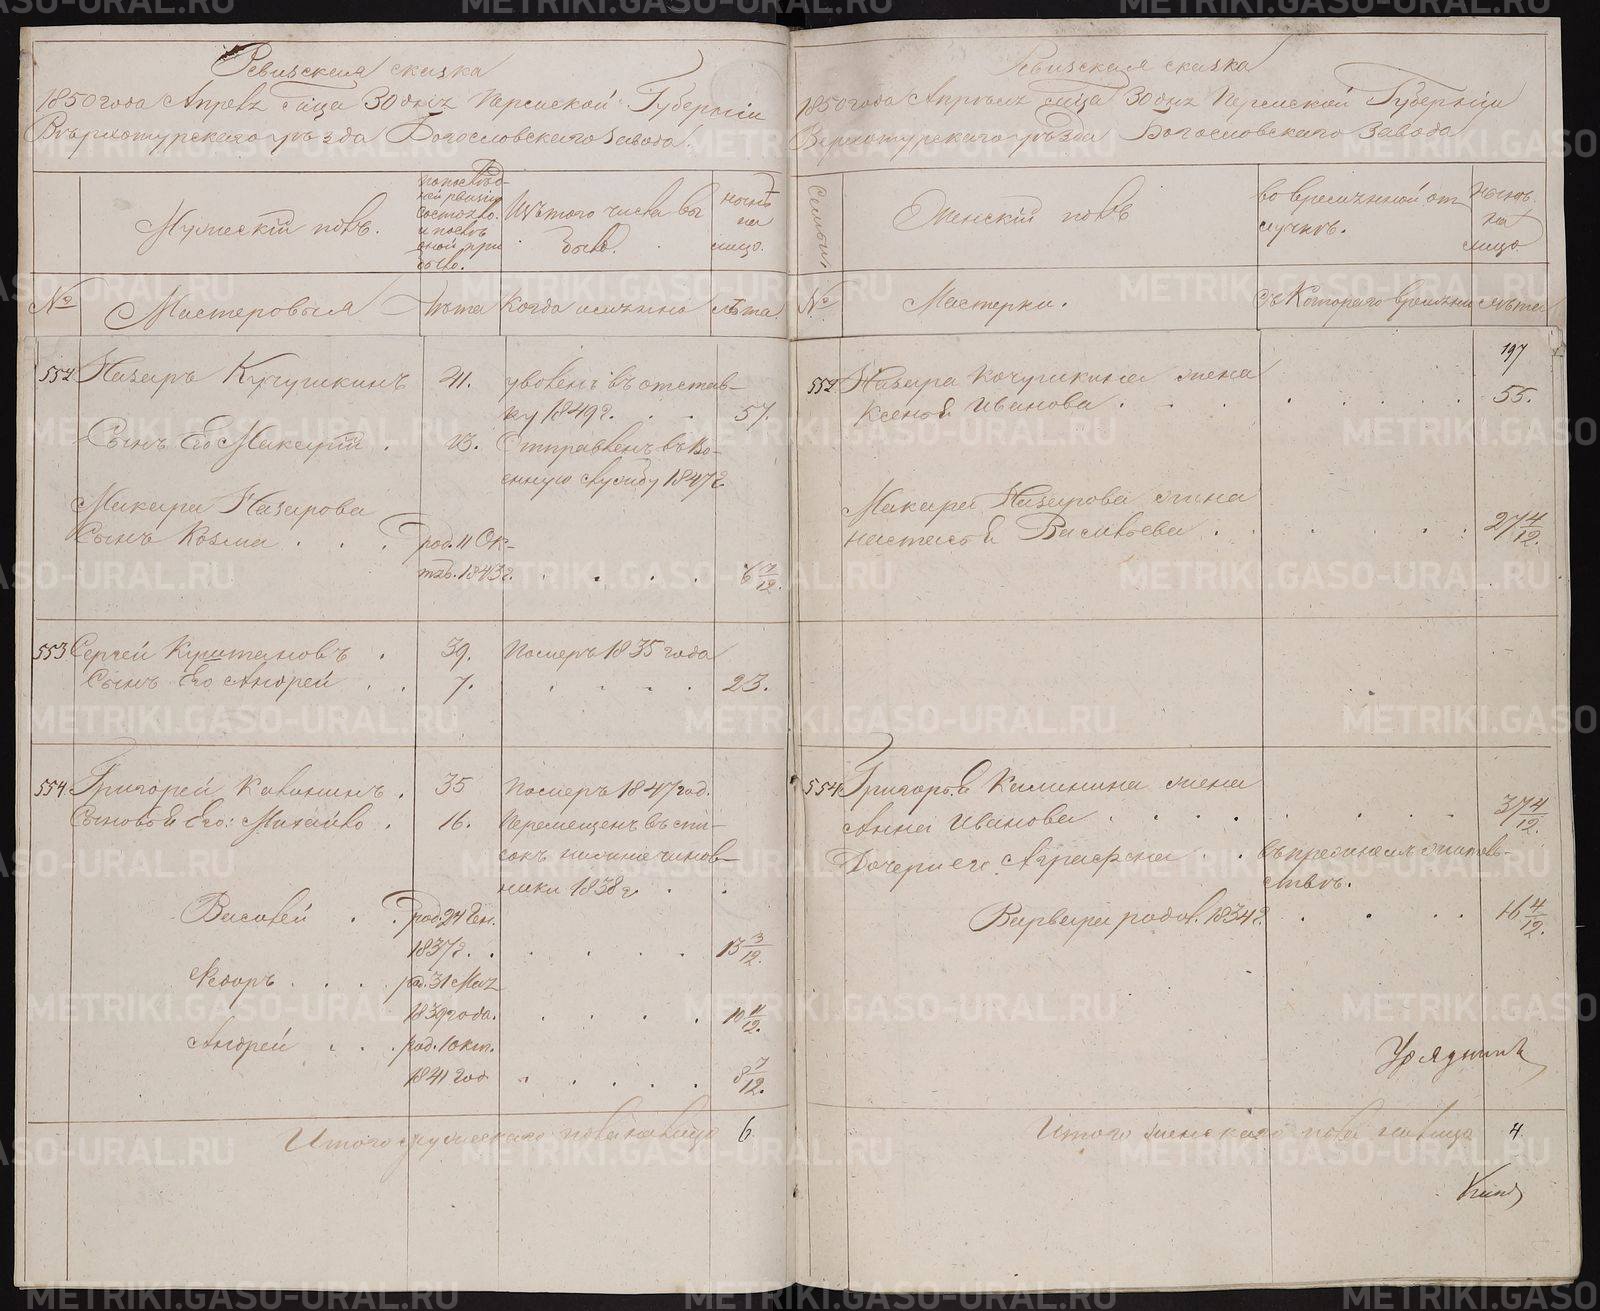 Ревизская сказка
1850 года Апреля м-ца 30 дня Пермской Губернiи
Верхотурскаго уѣзда Богословскаго завода.
Мужескiй полъ.
по послѣд-
ней ревизiи
состояло
и послѣ
оной при
было.
Изъ того числа вы
было.
нынѣ
на
лицо.
№
Мастеровыя
Лѣта
Когда именно
лѣта.
552 Назаръ Кучушкинъ 41. уволенъ въ отстав-
ку 1849 г. 57.
Сынъ его Макарiй . 13. Отправленъ въ во-
енную службу 1847 г
Макара Назарова
Сынъ Козма . . . род. 11 Ок-
тяб. 1843 г. . . . . 6 7/12.
553 Сергей Куштановъ . 39. Померъ 1835 года
Сынъ его Андрей . . 7. . . . . 23.
554 Григорей Калининъ . 35 Померъ 1847 год.
Сыновья его: Михайло . 16. Перемещенъ въ спи-
сокъ нисшие чинов-
ники 1838 г. . .
Василей . . род. 24 Ген.
1837 г. . . . . . 13 3/12.
Ѳедоръ . . . . род. 31 Мая
1839 года. . . . . 10 11/12.
Андрей . . . род. 1 окт.
1841 год . . . . . 8 7/12.
Итого мужескаго пола на лицо 6
Ревизская сказка
1850 года Апрѣля м-ца 30 дня Пермской Губернiи
Верхотурскаго уѣзда Богословскаго завода
Семьи
Женскiй полъ
во временной от
лучкѣ.
нынѣ
на
лицо
№
Мастерки.
съ Котораго времени
лѣта
197
552 Назара Кочушкина жена
Ксенья Иванова . . . . . . . . 55.
Макара Назарова жена
Настасья Васильева . . . . . 27 4/12.
554 Григорья Калинина жена
Анна Иванова . . . . . . . . 37 4/12.
Дочери его: Аграфена . . въ
ствѣ.
Варвара родов. 1834 г. . . . . 16 4/12.
Урядникъ
Итого женскаго пола на лицо 4